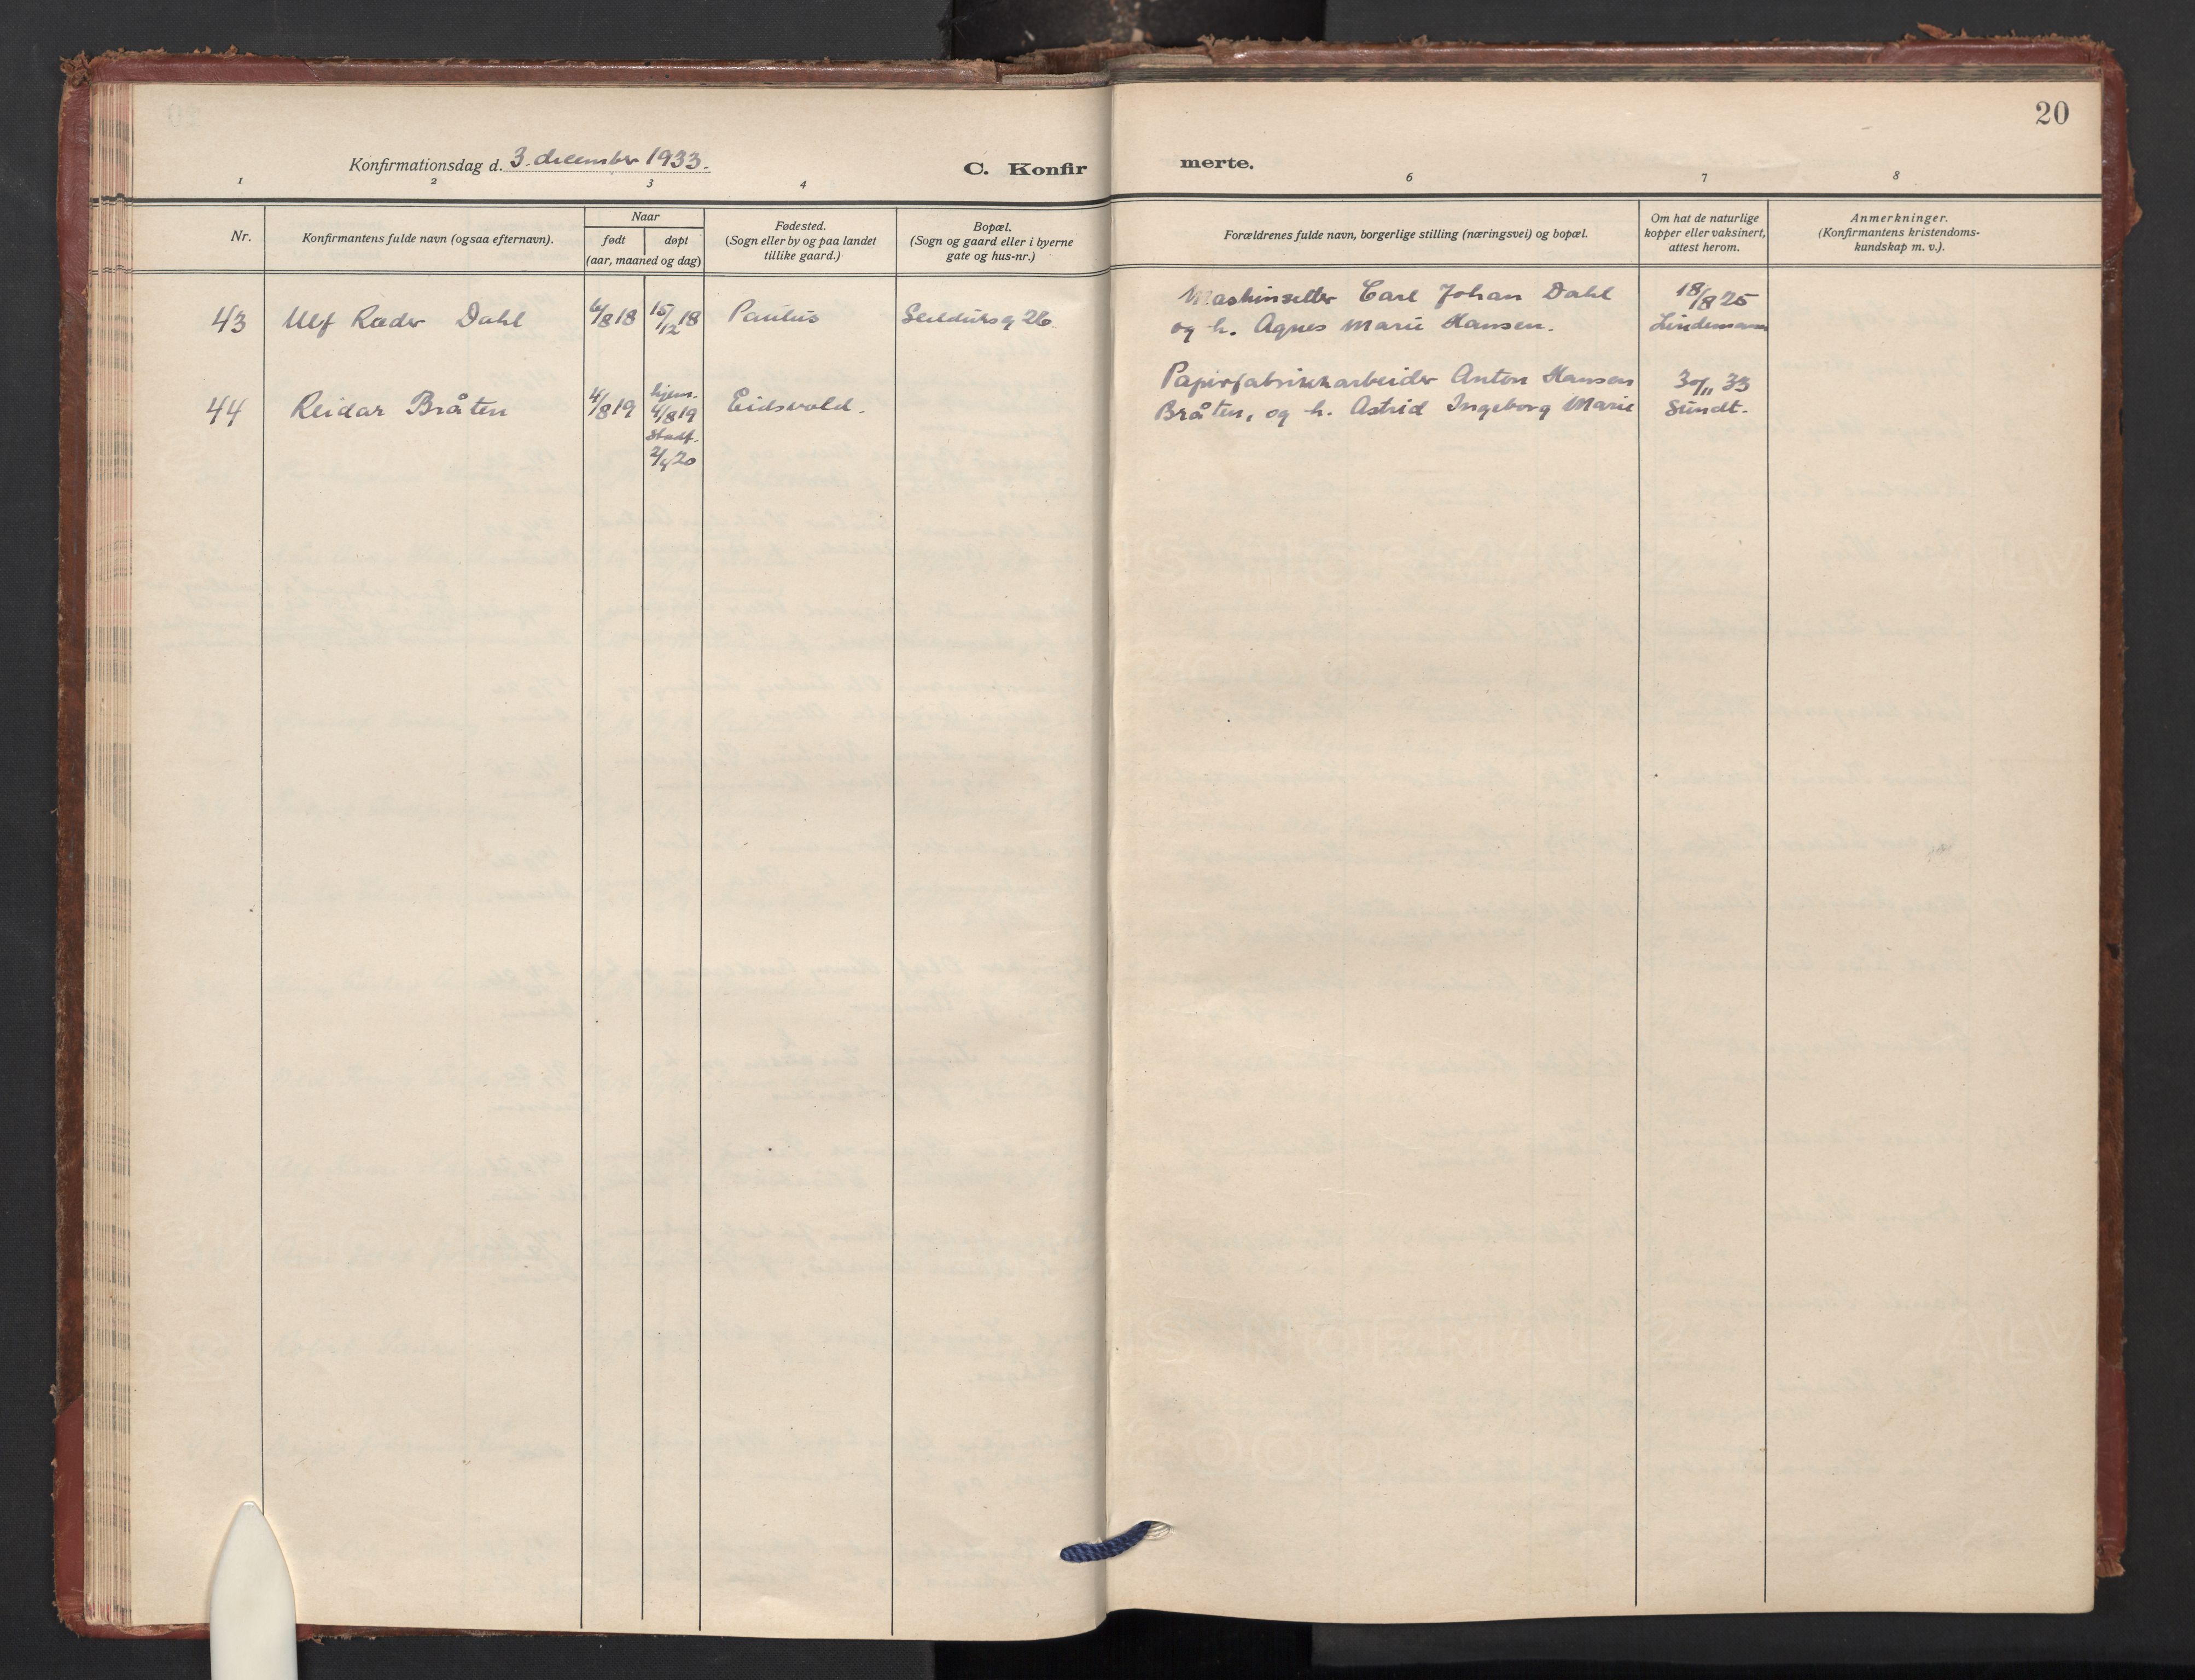 20
Konfirmationsdag d. 3. december 1933.
C. Konfir merte.
1 2 3 4 6 7 8
Nr.
Konfirmantens fulde navn (ogsaa efternavn).
Naar
født
døpt
(aar, maaned og dag)
Fødested.
(Sogn eller by og paa landet
tillike gaard.)
Bopæl.
(Sogn og gaard eller i byerne
gate og hus-nr.)
Forældrenes fulde navn, borgerlige stilling (næringsvei) og bopæl.
Om hat de naturlige
kopper eller vaksinert,
attest herom.
Anmerkninger.
(Konfirmantens kristendoms-
kundskap m. v.).
43 Ulf Rader Dahl 6/8 18 15/12 18 Paulus Seilduksg 26.
Maskinsetter Carl Johan Dahl
og h. Agnes Marie Hansen.
18/8 25
Lindemann
44 Reidar Bråten 4/8 19
hjem.
4/8 19
Stadf.
2/4 20
Eidsvold.
Papirfabrikkarbeider Anton Hansen
Bråten, og h. Astrid Ingeborg Marie
30/11 33
Sundt.